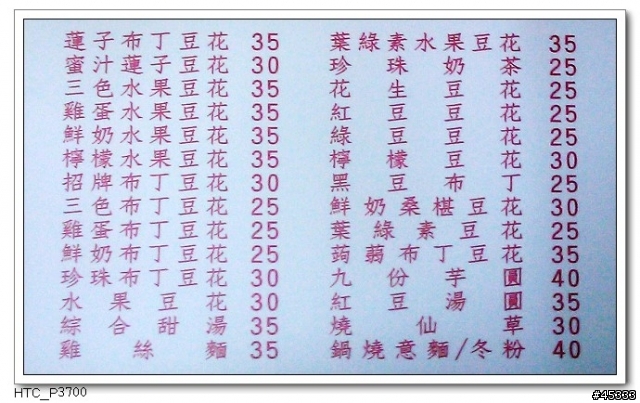 蓮子布丁豆花 35
蜜汁蓮子豆花 30
三色水果豆花 35
雞蛋水果豆花 35
鮮奶水果豆花 35
檸檬水果豆花 35
招牌布丁豆花 30
三色布丁豆花 25
雞蛋布丁豆花 25
鮮奶布丁豆花 25
珍珠布丁豆花 30
水果豆花 30
綜合甜湯 35
雞絲麵 35
葉綠素水果豆花 35
珍珠奶茶 25
花生豆花 25
紅豆豆花 25
綠豆豆花 25
檸檬豆花 30
黑豆布丁 25
鮮奶桑椹豆花 30
葉綠素豆花 25
蒟蒻布丁豆花 35
九份芋圓 40
紅豆湯圓 35
燒仙草 30
鍋燒意麵/冬粉 40
HTC_P3700
#45333